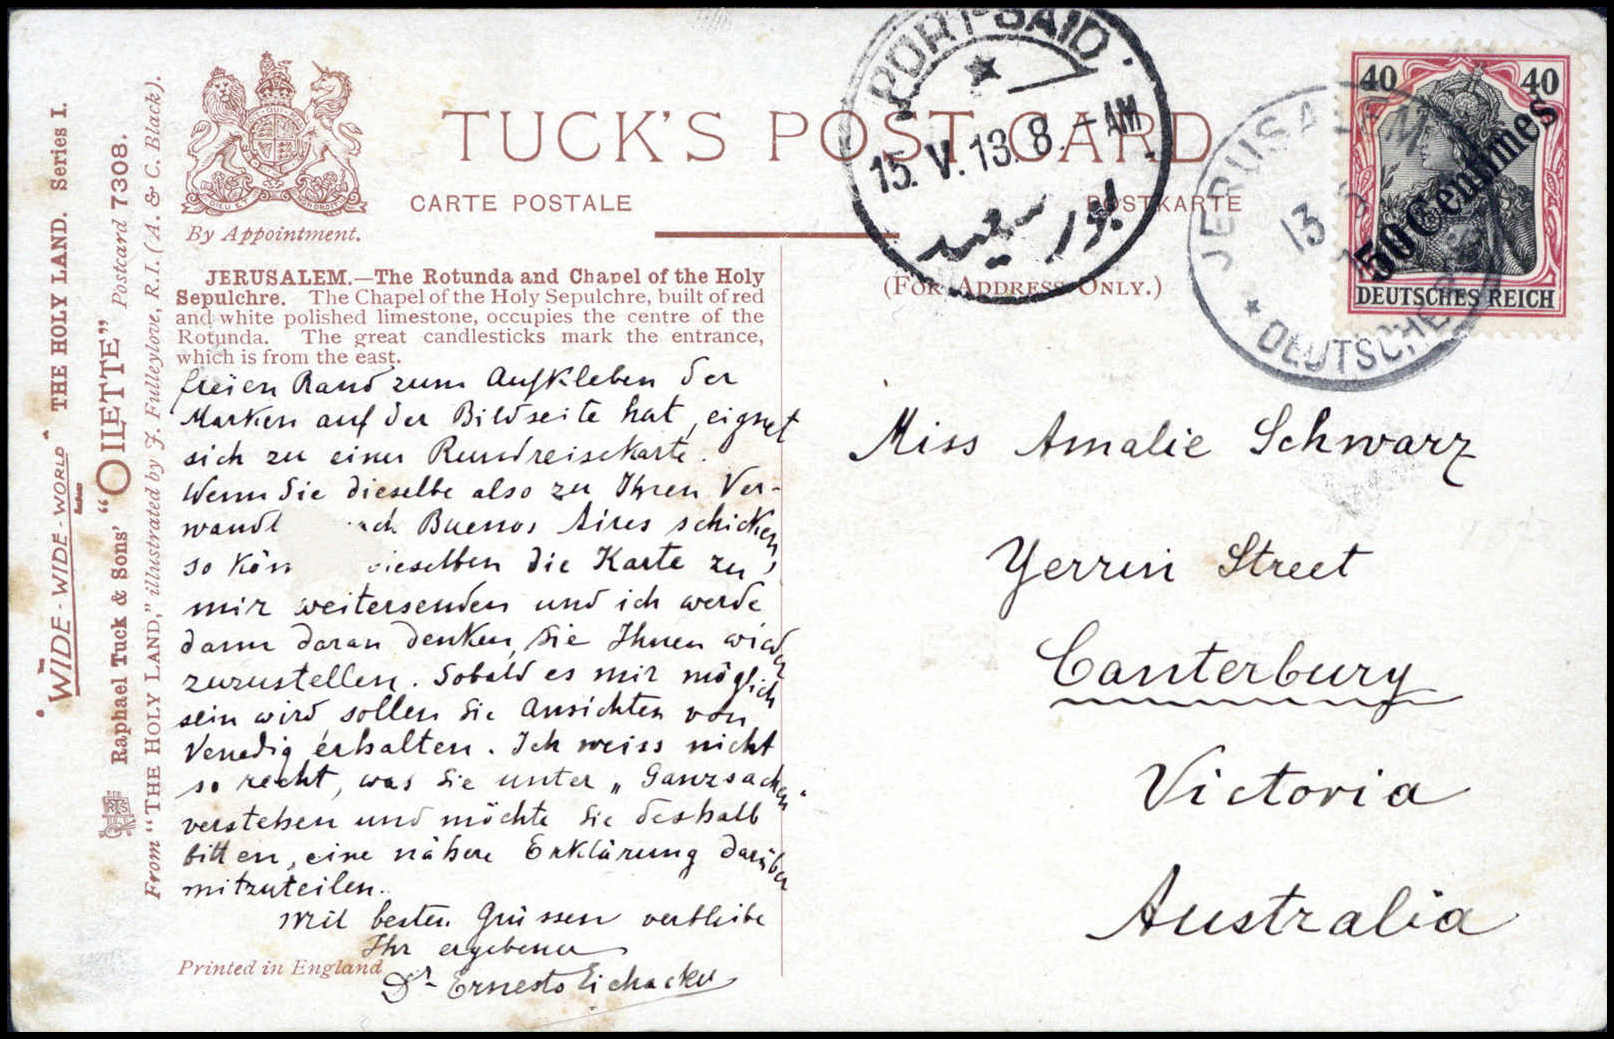 TUCK'S POST CARD
CARTE POSTALE
POSTKARTE
By Appointment.
(FOR ADDRESS ONLY.)
"WIDE-WIDE-WORLD" THE HOLY LAND. Series I.
Raphael Tuck & Sons' "OILETTE" Postcard 7308.
From "THE HOLY LAND," illustrated by J. Fulleylove, R.I. (A. & C. Black).
JERUSALEM.—The Rotunda and Chapel of the Holy
Sepulchre. The Chapel of the Holy Sepulchre, built of red
and white polished limestone, occupies the centre of the
Rotunda. The great candlesticks mark the entrance,
which is from the east.
freien Rand zum Aufkleben der
Marken auf der Bildseite hat, eignet
sich zu einer Rundreisekarte.
Wenn Sie dieselbe also zu Ihren Ver-
wandt ach Buenos Aires schicken,
so kön dieselben die Karte zu
mir weitersenden und ich werde
dann daran denken, sie Ihnen wieder
zuzustellen. Sobald es mir möglich
sein wird sollen Sie Ansichten von
Venedig erhalten. Ich weiss nicht
so recht, was Sie unter „Ganzsachen"
verstehen und möchte Sie deshalb
bitten, eine nähere Erklärung darüber
mitzuteilen.
Mit besten Grüssen verbleibe
Ihr ergebener
Dr Ernesto Eichacker
Printed in England
PORT-SAID
15. V. 13. 8 - AM
بور سعيد
JERUSALEM
13
* DEUTSCHE
40 40
50 Centimes
DEUTSCHES REICH
Miss Amalie Schwarz
Yerrin Street
Canterbury
Victoria
Australia